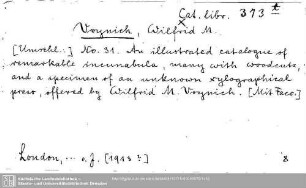 Cat. libr. 373 t
Voynich, Wilfrid M.
[Umschl.:] No. 31. An illustrated catalogue of
remarkable incunabula, many with woodcuts,
and a specimen of an unknown xylographical
press, offered by Wilfrid M. Voynich. [Mit Facs.]
London, ... o. J. [1913?] 8